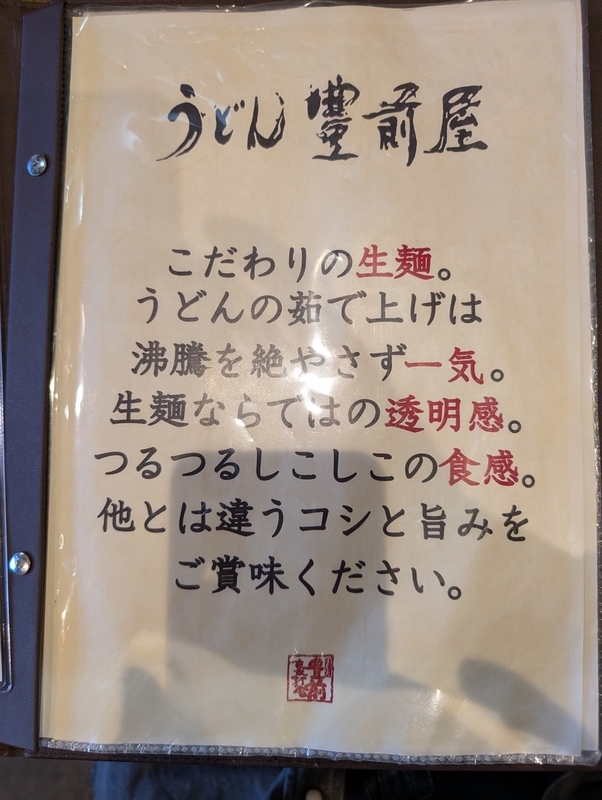 うどん 豊前屋
こだわりの生麺。
うどんの茹で上げは
沸騰を絶やさず一気。
生麺ならではの透明感。
つるつるしこしこの食感。
他とは違うコシと旨みを
ご賞味ください。